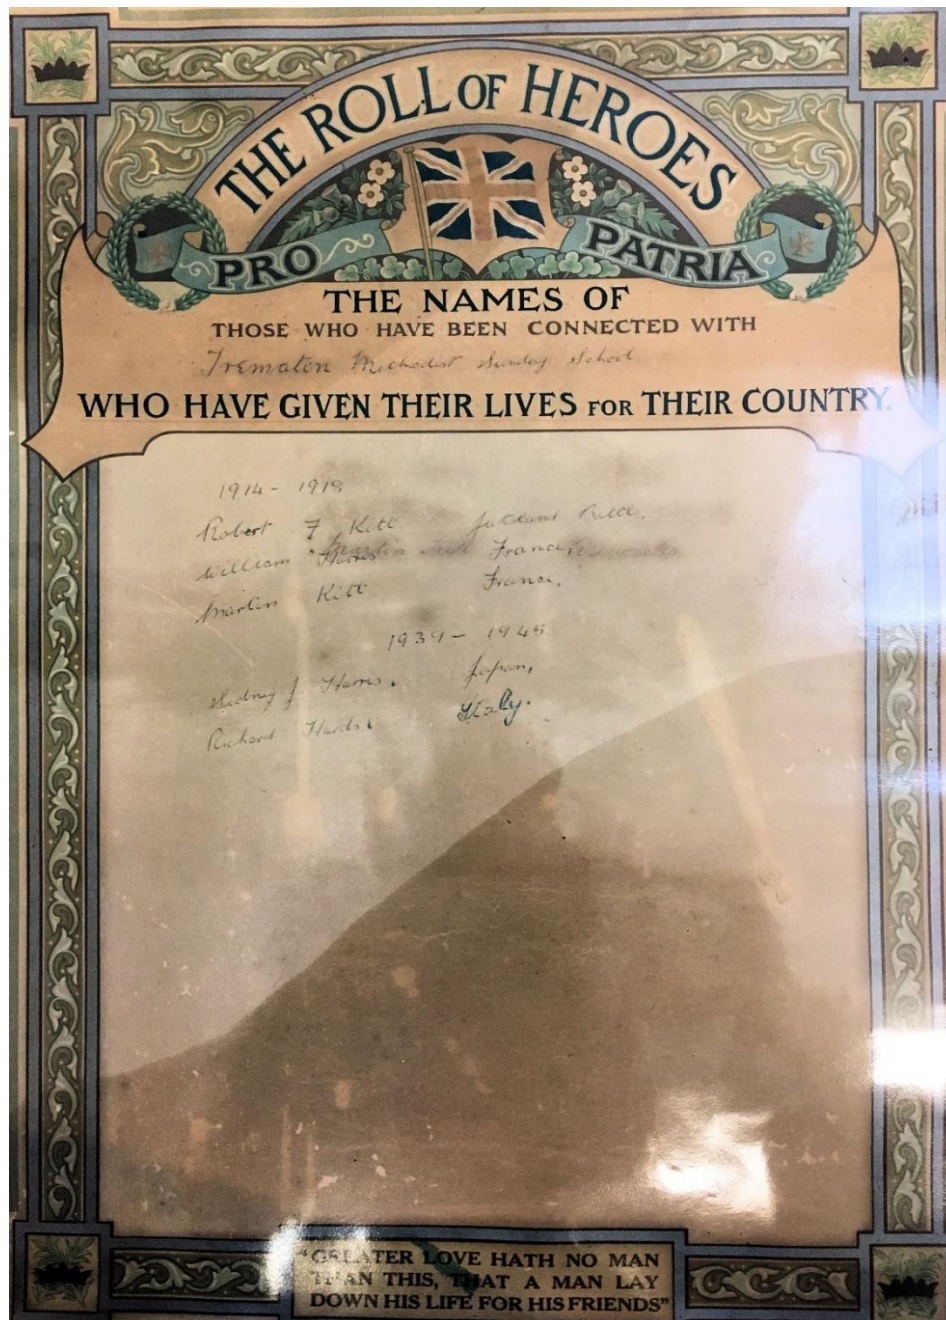 THE ROLL OF HEROES
PRO PATRIA
THE NAMES OF
THOSE WHO HAVE BEEN CONNECTED WITH
Trematon Methodist Sunday School
WHO HAVE GIVEN THEIR LIVES FOR THEIR COUNTRY.
1914 - 1918
Robert F Kitt Jutland Battle.
William Harris France
Martin Kitt France,
1939 - 1945
Sidney J. Harris. Japan,
Richard Italy.
"GREATER LOVE HATH NO MAN
THAN THIS, THAT A MAN LAY
DOWN HIS LIFE FOR HIS FRIENDS"